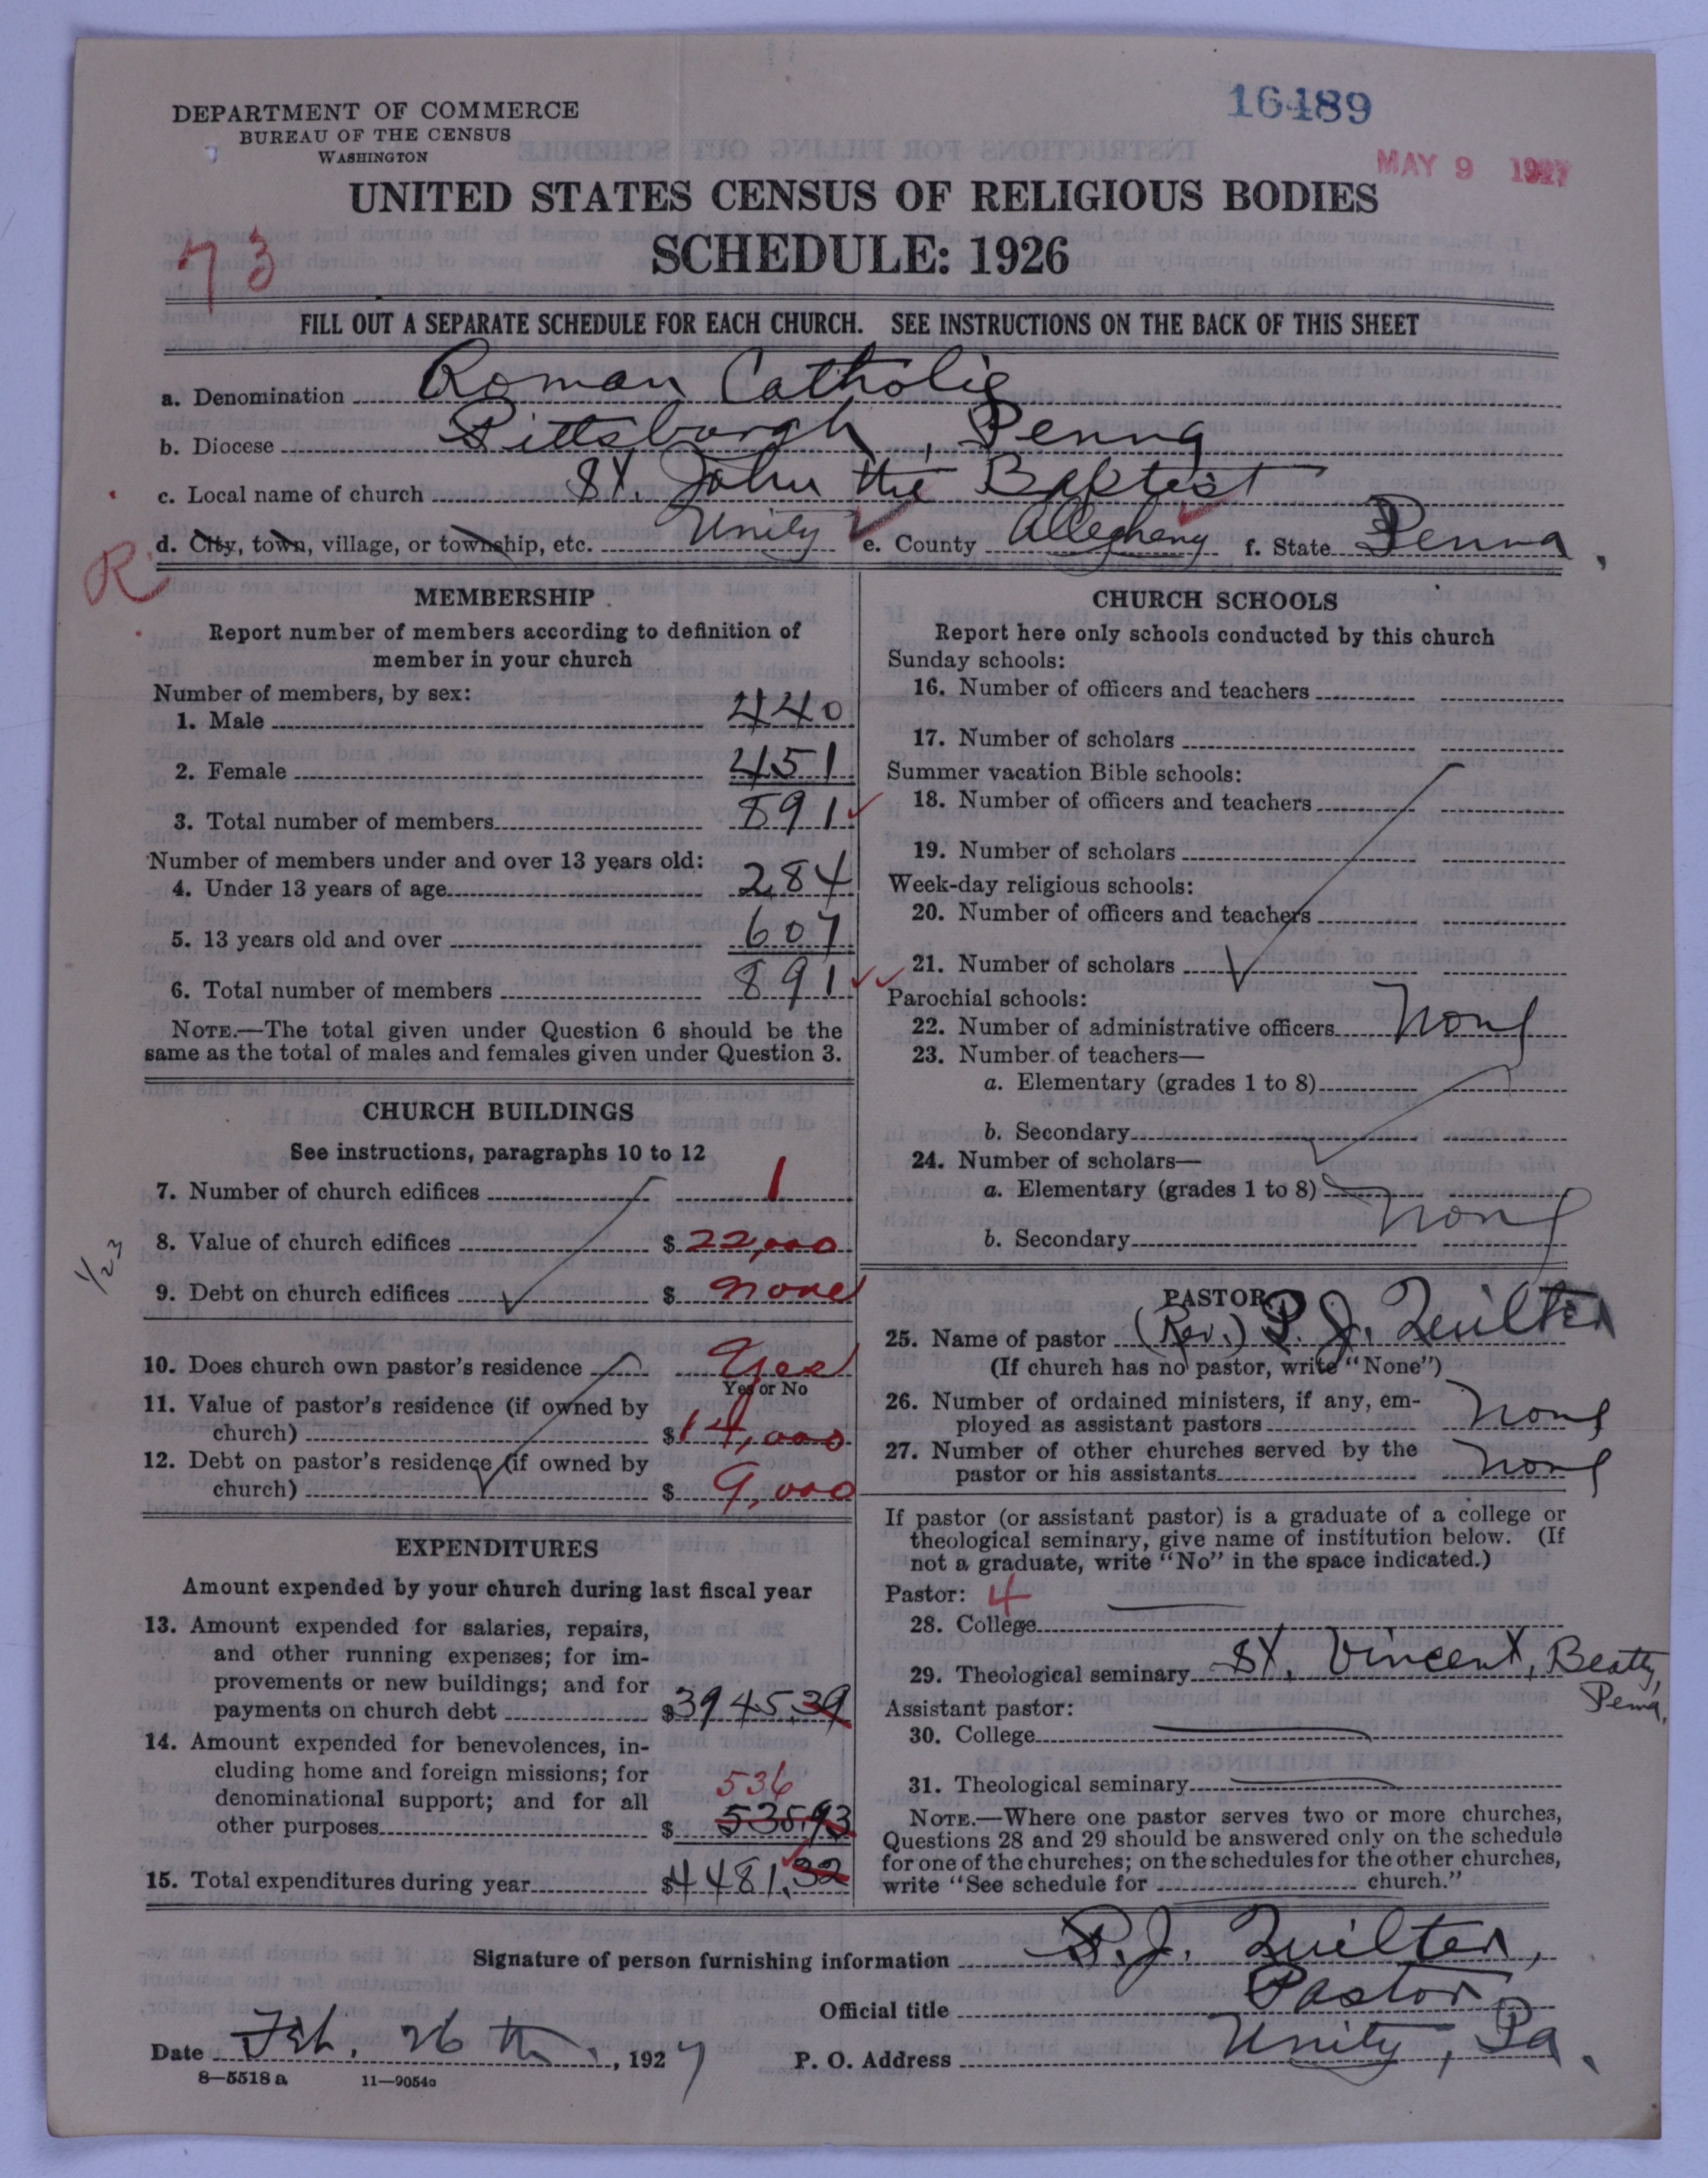 DEPARTMENT OF COMMERCE
BUREAU OF THE CENSUS
WASHINGTON
16489
MAY 9 1927
UNITED STATES CENSUS OF RELIGIOUS BODIES
SCHEDULE: 1926
73
FILL OUT A SEPARATE SCHEDULE FOR EACH CHURCH. SEE INSTRUCTIONS ON THE BACK OF THIS SHEET
a. Denomination Roman Catholic
b. Diocese Pittsburgh, Penna
c. Local name of church St. John the Baptist
d. City, town, village, or township, etc. Unity e. County Allegheny f. State Penna.
R
MEMBERSHIP
Report number of members according to definition of
member in your church
Number of members, by sex:
1. Male 440
2. Female 451
3. Total number of members 891
Number of members under and over 13 years old:
4. Under 13 years of age 284
5. 13 years old and over 607
6. Total number of members 891
NOTE.—The total given under Question 6 should be the
same as the total of males and females given under Question 3.
CHURCH BUILDINGS
See instructions, paragraphs 10 to 12
7. Number of church edifices 1
8. Value of church edifices $ 22,000
1/23
9. Debt on church edifices $ none
10. Does church own pastor's residence Yes
Yes or No
11. Value of pastor's residence (if owned by
church) $ 14,000
12. Debt on pastor's residence (if owned by
church) $ 9,000
EXPENDITURES
Amount expended by your church during last fiscal year
13. Amount expended for salaries, repairs,
and other running expenses; for im-
provements or new buildings; and for
payments on church debt $3945.39
14. Amount expended for benevolences, in-
cluding home and foreign missions; for
denominational support; and for all 536
other purposes $ 535.93
15. Total expenditures during year $4481.32
CHURCH SCHOOLS
Report here only schools conducted by this church
Sunday schools:
16. Number of officers and teachers
17. Number of scholars
Summer vacation Bible schools:
18. Number of officers and teachers
19. Number of scholars
Week-day religious schools:
20. Number of officers and teachers
21. Number of scholars
Parochial schools:
22. Number of administrative officers None
23. Number of teachers—
a. Elementary (grades 1 to 8)
b. Secondary
24. Number of scholars—
a. Elementary (grades 1 to 8) None
b. Secondary
PASTOR
25. Name of pastor (Rev.) P. J. Quilter
(If church has no pastor, write "None")
26. Number of ordained ministers, if any, em-
ployed as assistant pastors None
27. Number of other churches served by the
pastor or his assistants None
If pastor (or assistant pastor) is a graduate of a college or
theological seminary, give name of institution below. (If
not a graduate, write "No" in the space indicated.)
Pastor: 4
28. College
29. Theological seminary St. Vincent, Beatty,
Penna.
Assistant pastor:
30. College
31. Theological seminary
NOTE.—Where one pastor serves two or more churches,
Questions 28 and 29 should be answered only on the schedule
for one of the churches; on the schedules for the other churches,
write "See schedule for church."
Signature of person furnishing information P. J. Quilter,
Official title Pastor
Date Feb. 26th, 1927 P. O. Address Unity, Pa.
8—5518 a 11—9054a